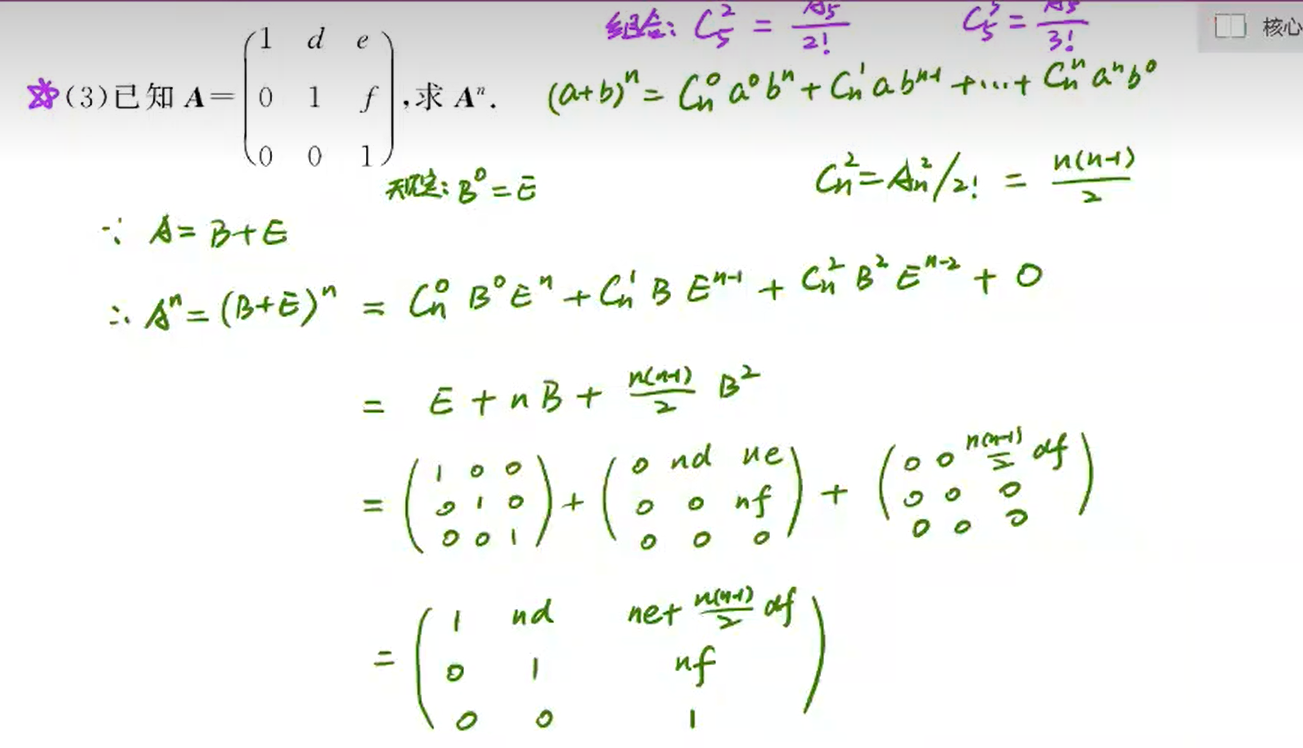 组合: C₅² = A₅/2! C₅³ = A₅/3!
核心
(3)已知 A = (1 d e; 0 1 f; 0 0 1), 求 Aⁿ.
(a+b)ⁿ = Cₙ⁰a⁰bⁿ + Cₙ¹abⁿ⁻¹ + ⋯ + Cₙⁿaⁿb⁰
规定: B⁰ = E
Cₙ² = Aₙ²/2! = n(n-1)/2
∵ A = B+E
∴ Aⁿ = (B+E)ⁿ = Cₙ⁰B⁰Eⁿ + Cₙ¹BEⁿ⁻¹ + Cₙ²B²Eⁿ⁻² + 0
= E + nB + n(n-1)/2 B²
= (1 0 0; 0 1 0; 0 0 1) + (0 nd ne; 0 0 nf; 0 0 0) + (0 0 n(n-1)/2 df; 0 0 0; 0 0 0)
= (1 nd ne+n(n-1)/2 df; 0 1 nf; 0 0 1)